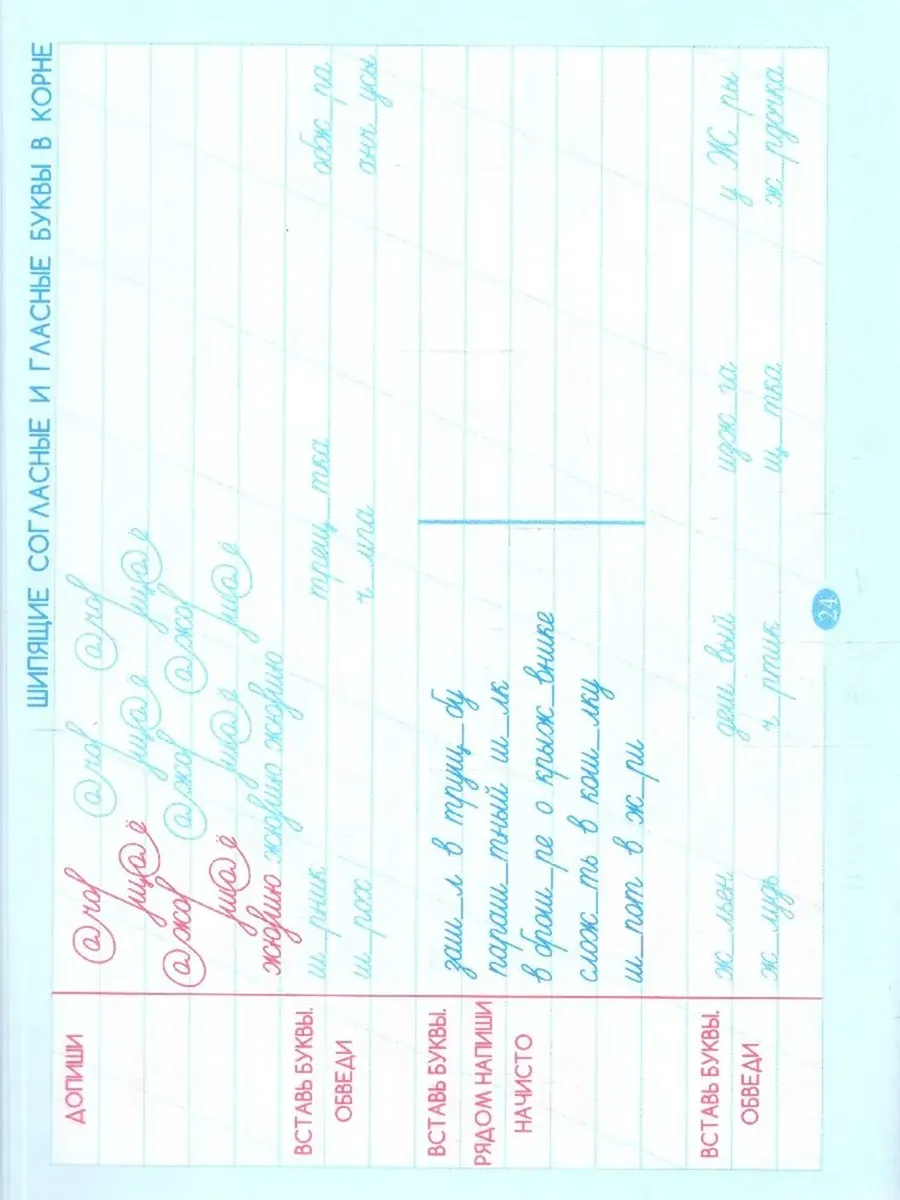 ШИПЯЩИЕ СОГЛАСНЫЕ И ГЛАСНЫЕ БУКВЫ В КОРНЕ
ДОПИШИ
жюрию жюрию жюрию
ВСТАВЬ БУКВЫ.
ОБВЕДИ
ш_рник трещ_тка обж_ра
ш_рох ч_лга анч_усы
ВСТАВЬ БУКВЫ.
РЯДОМ НАПИШИ
НАЧИСТО
заш_л в трущ_бу
параш_тный ш_лк
в брош_ре о крыж_внике
слож_ть в кош_лку
ш_пот в ж_ри
ВСТАВЬ БУКВЫ.
ОБВЕДИ
ж_льен деш_вый изж_га у Ж_ры
ж_лудь ч_ртик щ_тка ж_рдочка
24